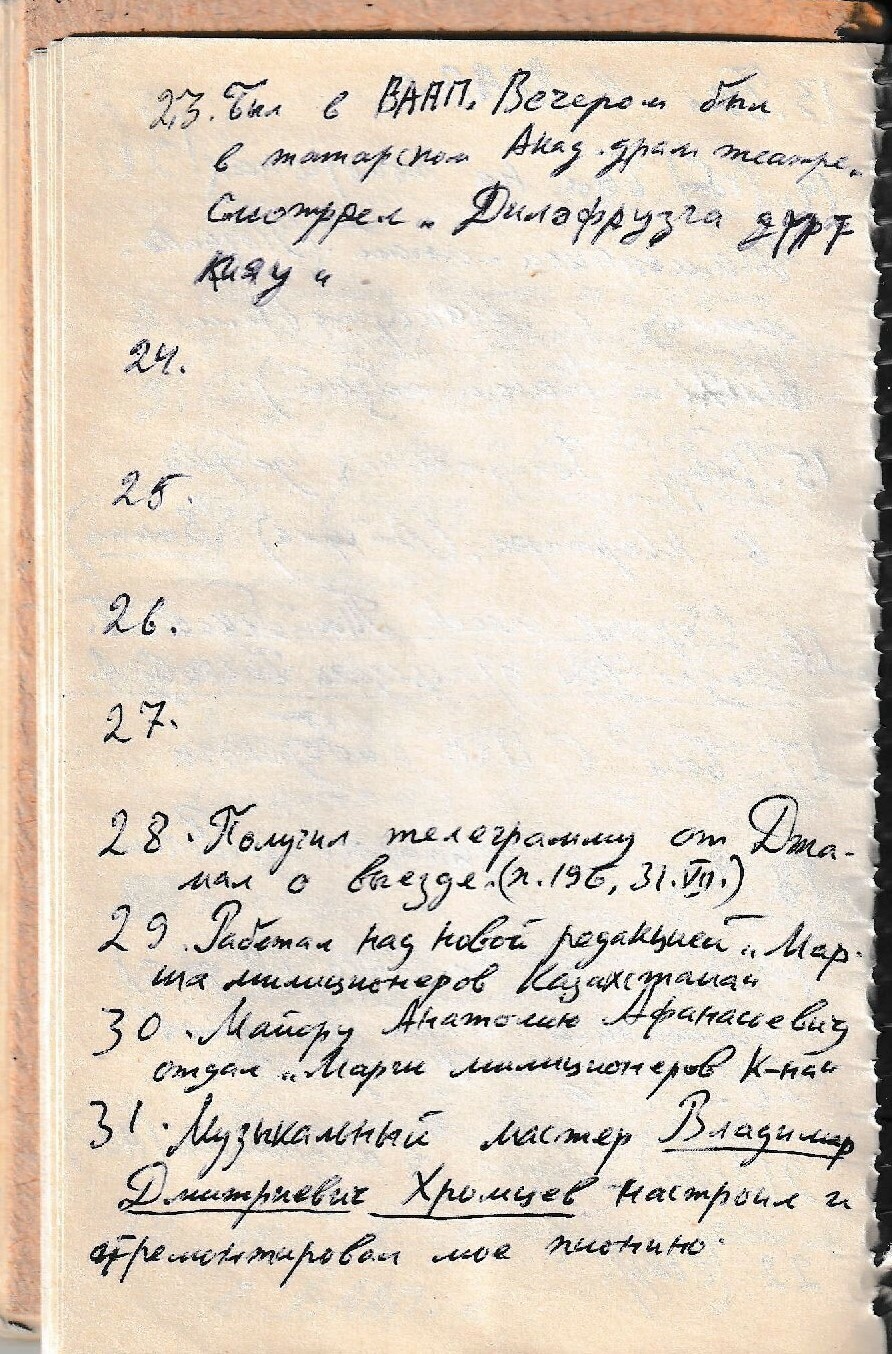 23. Был в ВААП. Вечером был
в татарском Акад. драм театре.
Смотрел „Дилэфрузга дүрт
кияү"
24.
25.
26.
27.
28. Получил телеграмму от Джа-
мал о выезде. (п. 196, 31.VII.)
29. Работал над новой редакцией „Мар-
ша милиционеров Казахстана"
30. Майору Анатолию Афанасиевичу
отдал „Марш милиционеров К-на"
31. Музыкальный мастер Владимир
Дмитриевич Хромцев настроил и
отремонтировал мое пионино.